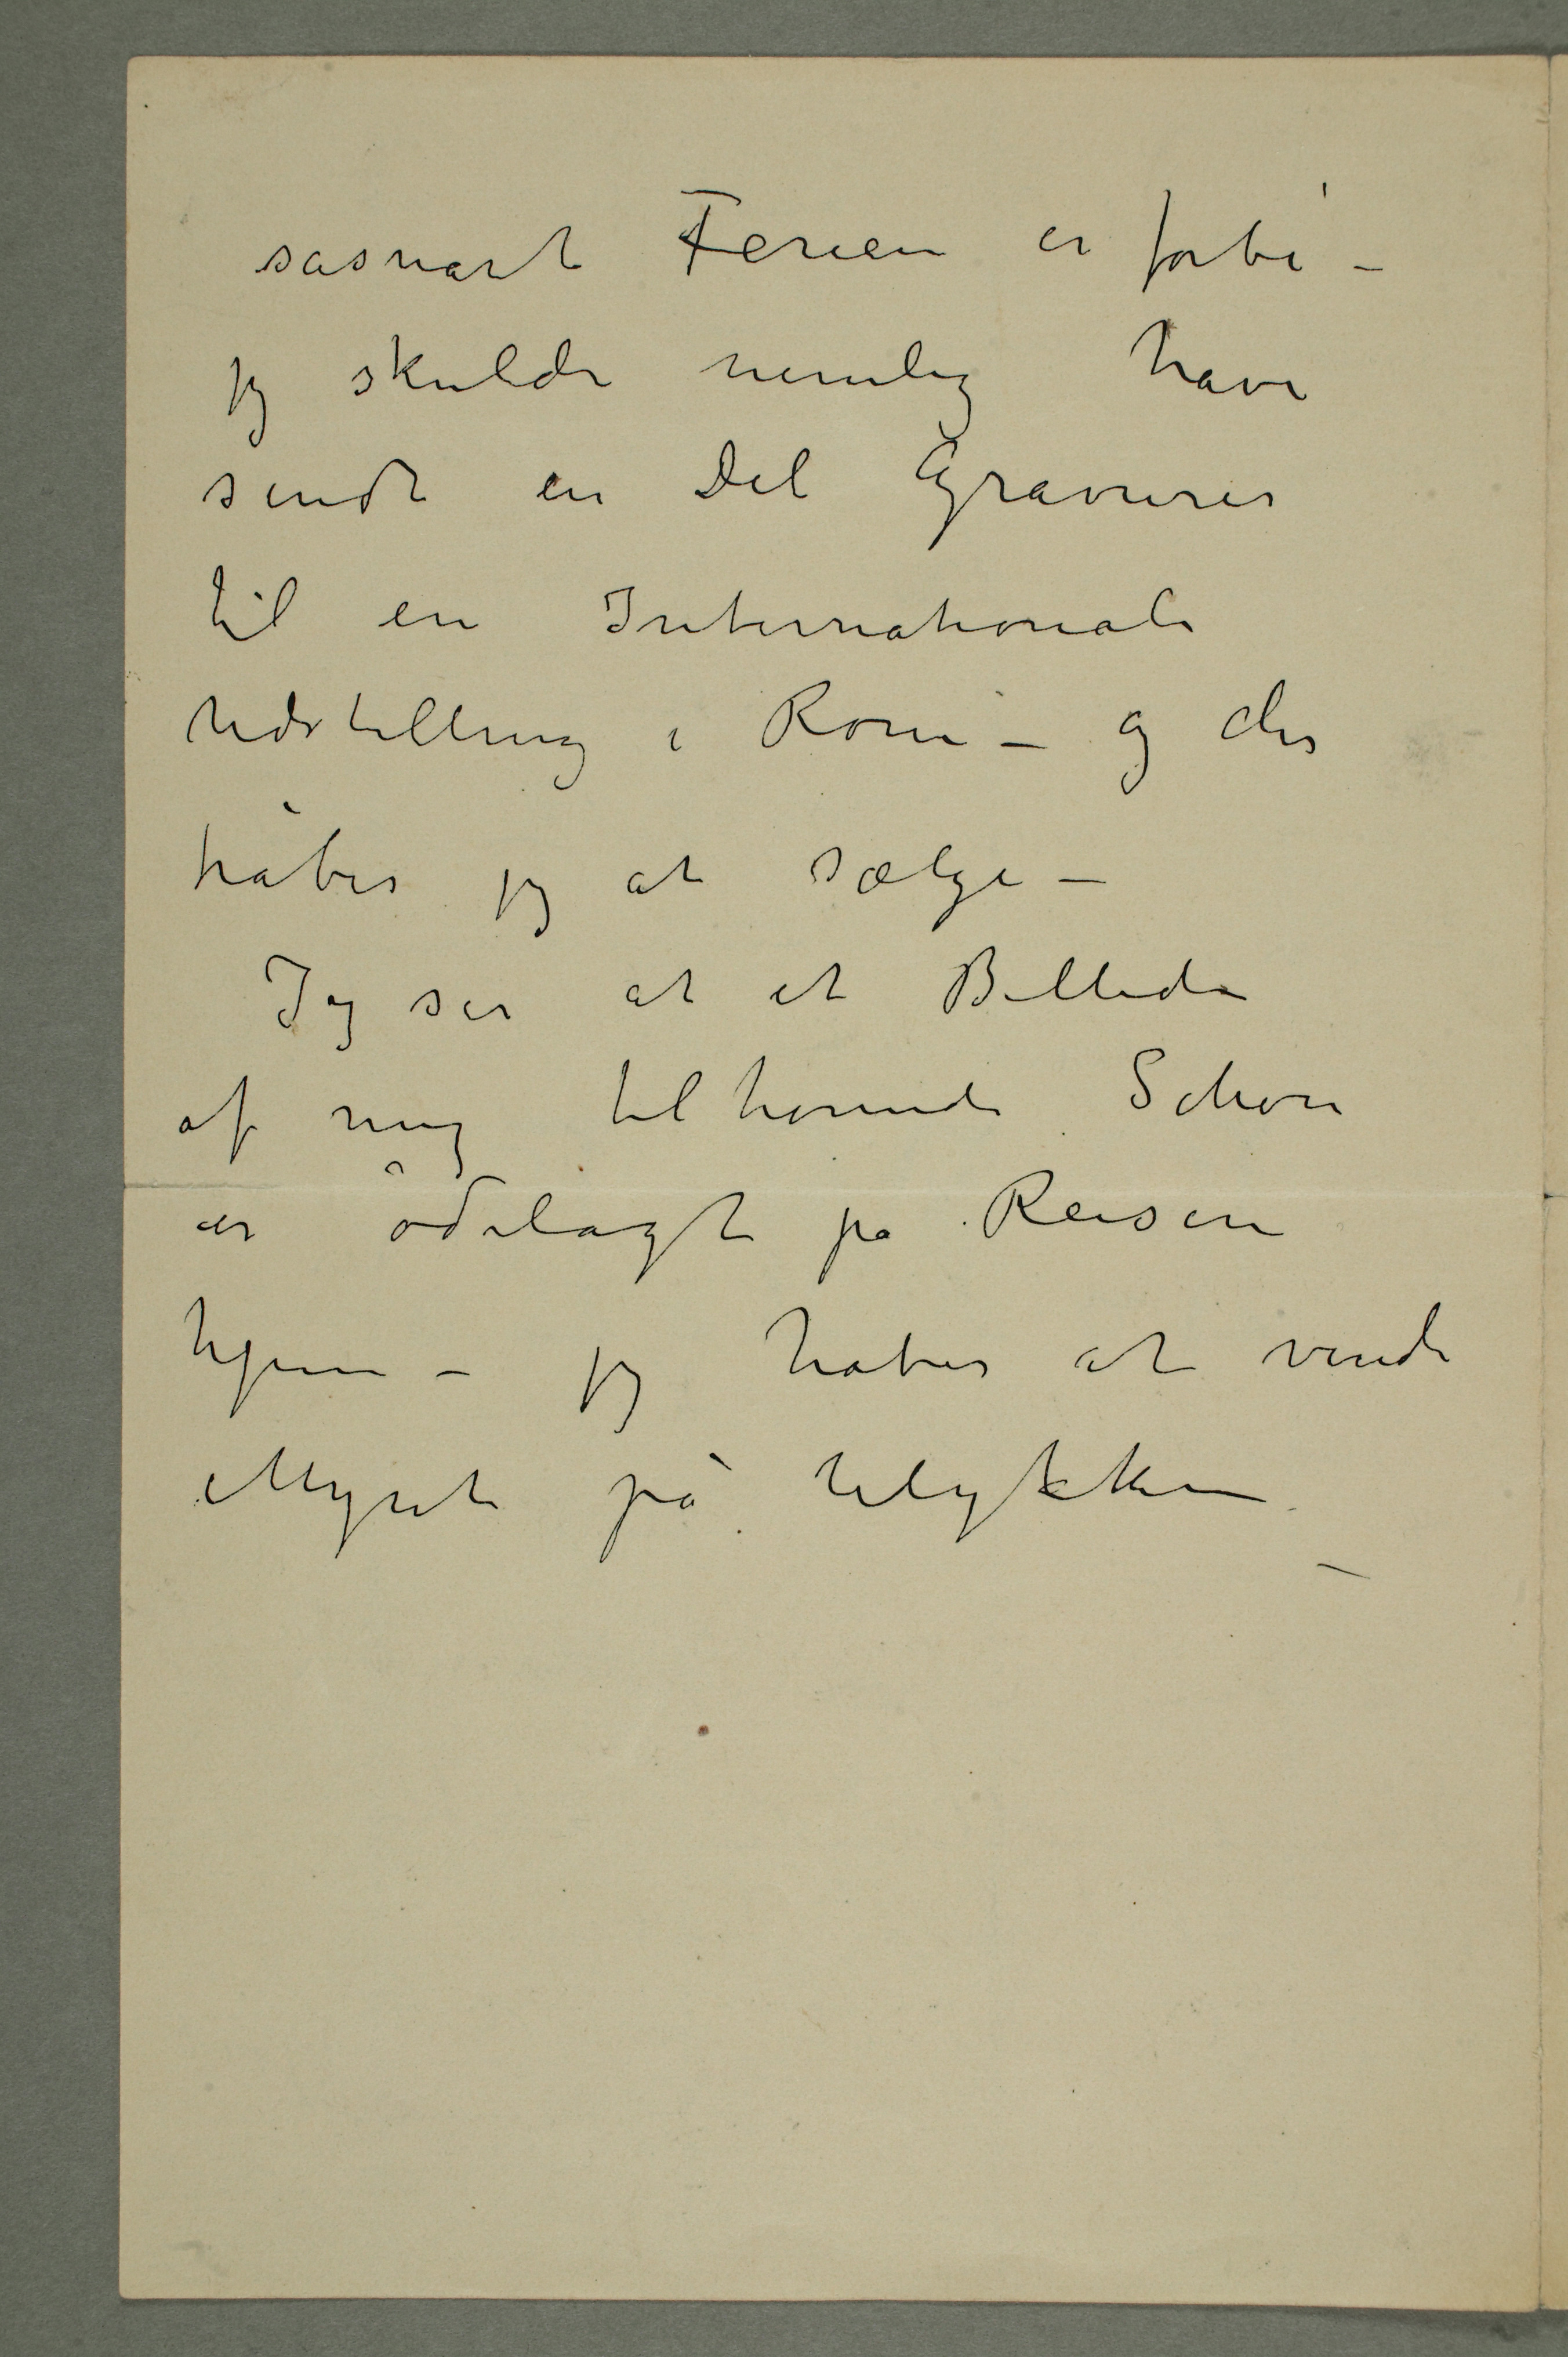 såsnart Ferien er forbi –
jeg skulde nemlig have
sendt en Del Gravurer
til en International
Udstilling i Rom – og der
håber jeg at sælge –
Jeg ser at et Billede
af mig tilhørende Schou
er ödelagt på Reisen
hjem – jeg håber at vinde
Myset på Ulykken –